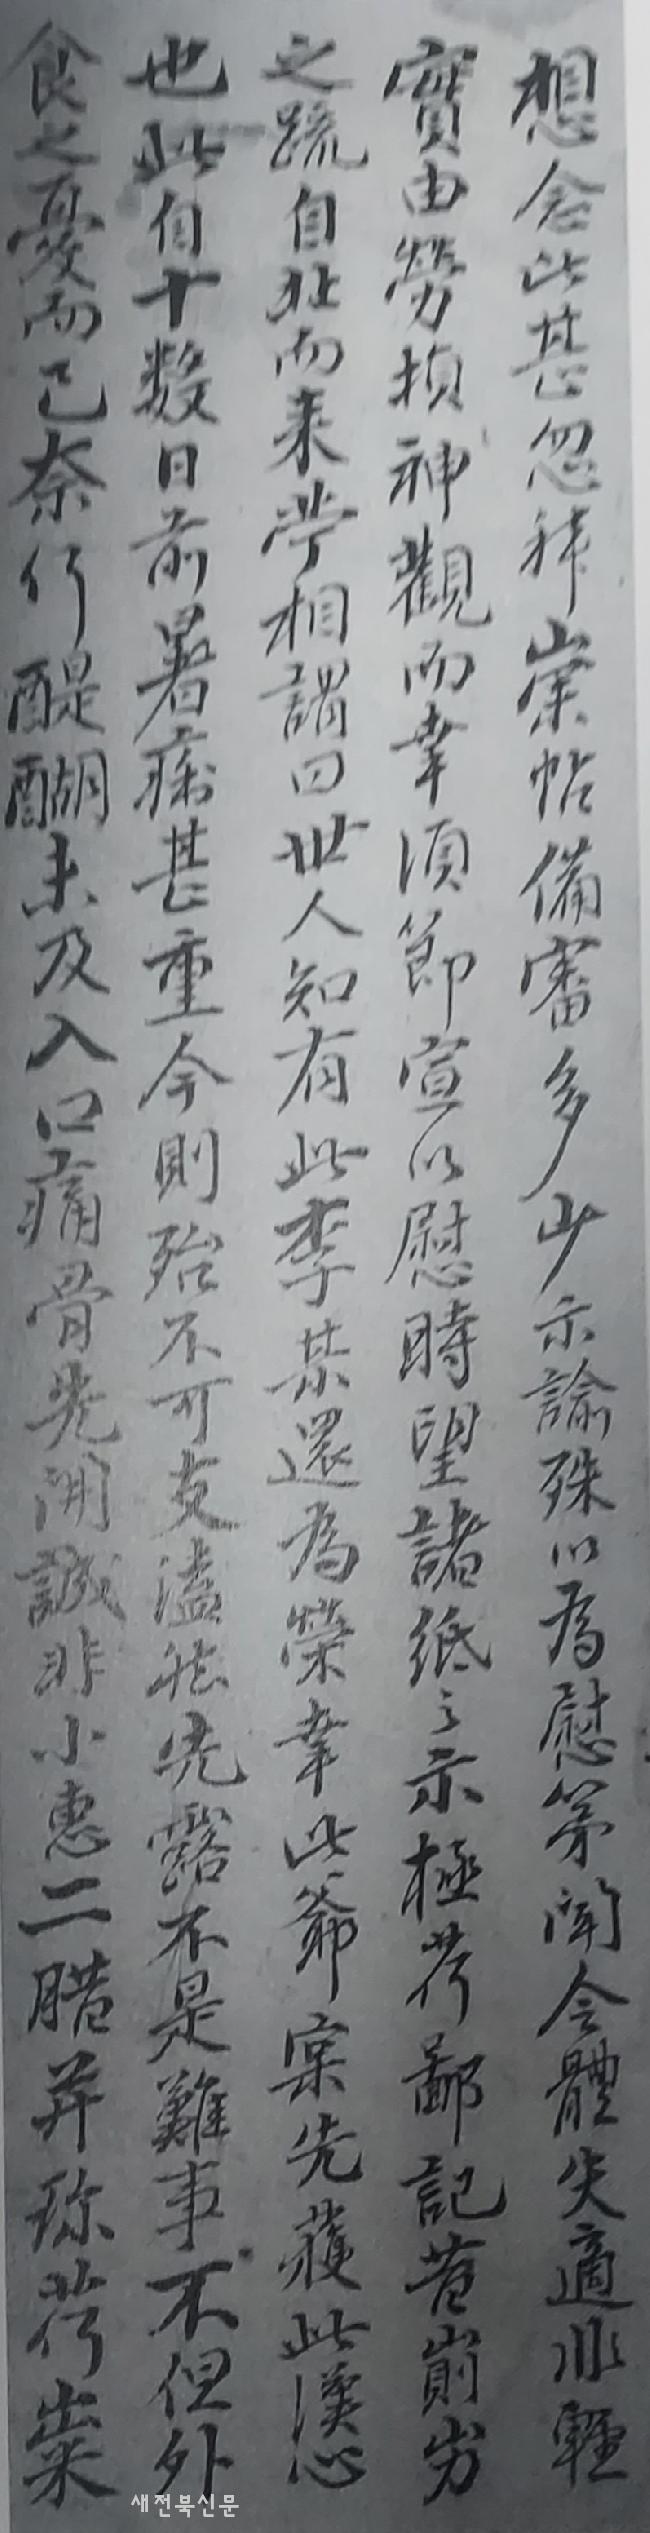 想念此甚忽拜崇帖備審多少示諭殊以為慰第聞令體失適非輕
實由勞損神觀而幸須節宣以慰時望諸紙之示極荷鄙記昔崩岁
之疏自北而来學相謂曰世人知有此李某還為榮幸此爺案先蒙此漢心
也此自十數日前暑痢甚重今則殆不可支溘然先露不是難事不但外
食之憂而已奈何醍醐未及入口痛骨先開誠非小惠二腊并珎荷粜
새전북신문